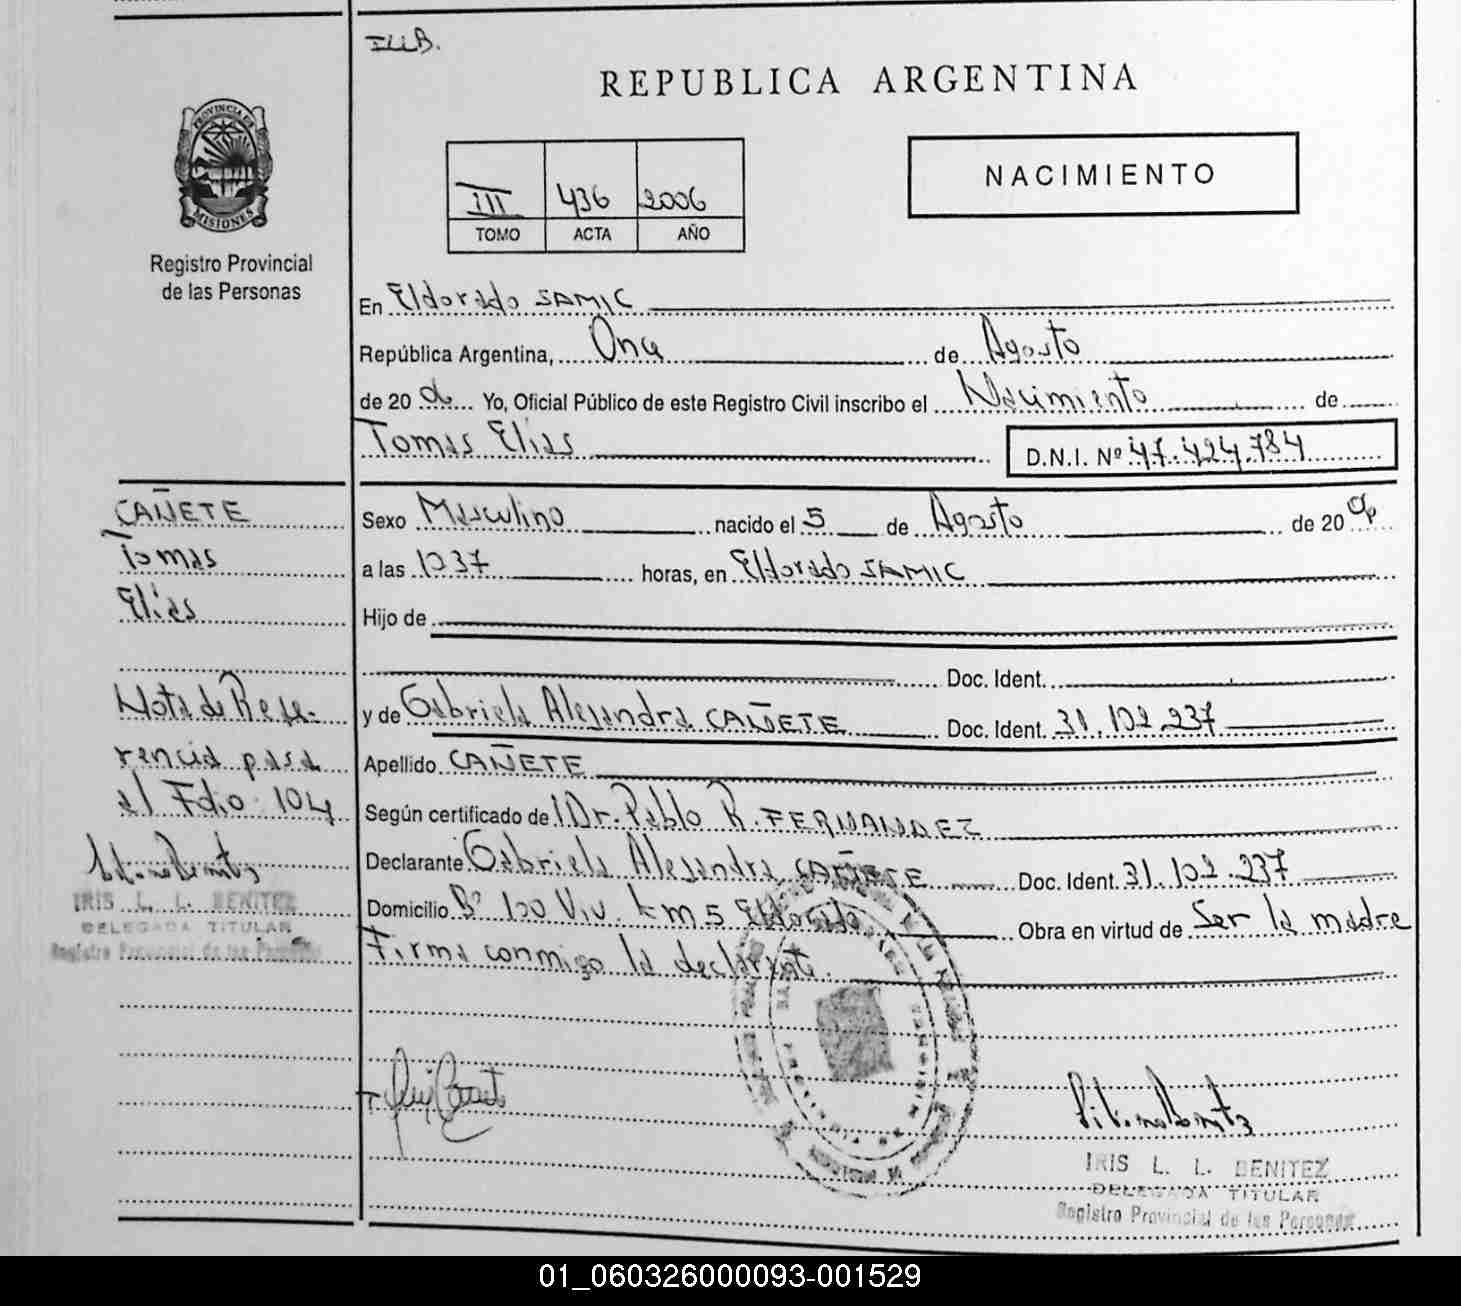 ILLB.
REPUBLICA ARGENTINA
PROVINCIA DE
MISIONES
Registro Provincial
de las Personas
III 436 2006
TOMO ACTA AÑO
NACIMIENTO
En Eldorado SAMIC
República Argentina, Once de Agosto
de 20 06 Yo, Oficial Público de este Registro Civil inscribo el Nacimiento de
Tomas Elias D.N.I. Nº 47.424.784
CAÑETE
Tomas
Elias
Sexo Masculino nacido el 5 de Agosto de 20 06
a las 1037 horas, en Eldorado SAMIC
Hijo de
Doc. Ident.
y de Gabriela Alejandra CAÑETE Doc. Ident. 31.102.237
Apellido CAÑETE
Según certificado de Dr. Pablo R. FERNANDEZ
Declarante Gabriela Alejandra CAÑETE Doc. Ident. 31.102.237
Domicilio Bº 100 Viv. Km 5 Eldorado Obra en virtud de Ser la madre
Firma conmigo la declarante.
Nota de Refe-
rencia pasa
al Folio 104
IRIS L. L. BENITEZ
DELEGADA TITULAR
Registro Provincial de las Personas
IRIS L. L. BENITEZ
DELEGADA TITULAR
Registro Provincial de las Personas
01_060326000093-001529